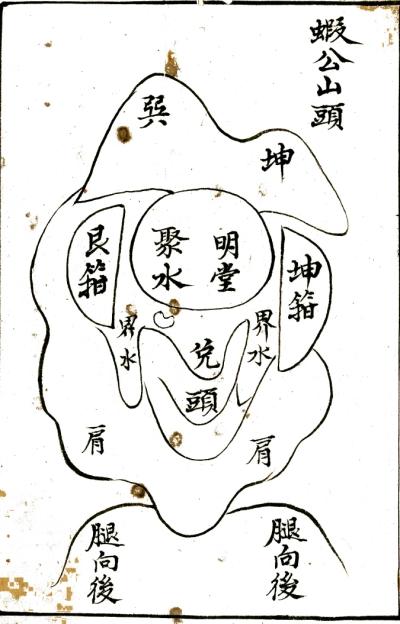 蝦公山頭
巽
坤
明堂
聚水
艮箝
坤箝
界水
界水
兌
頭
肩
肩
腿向後
腿向後